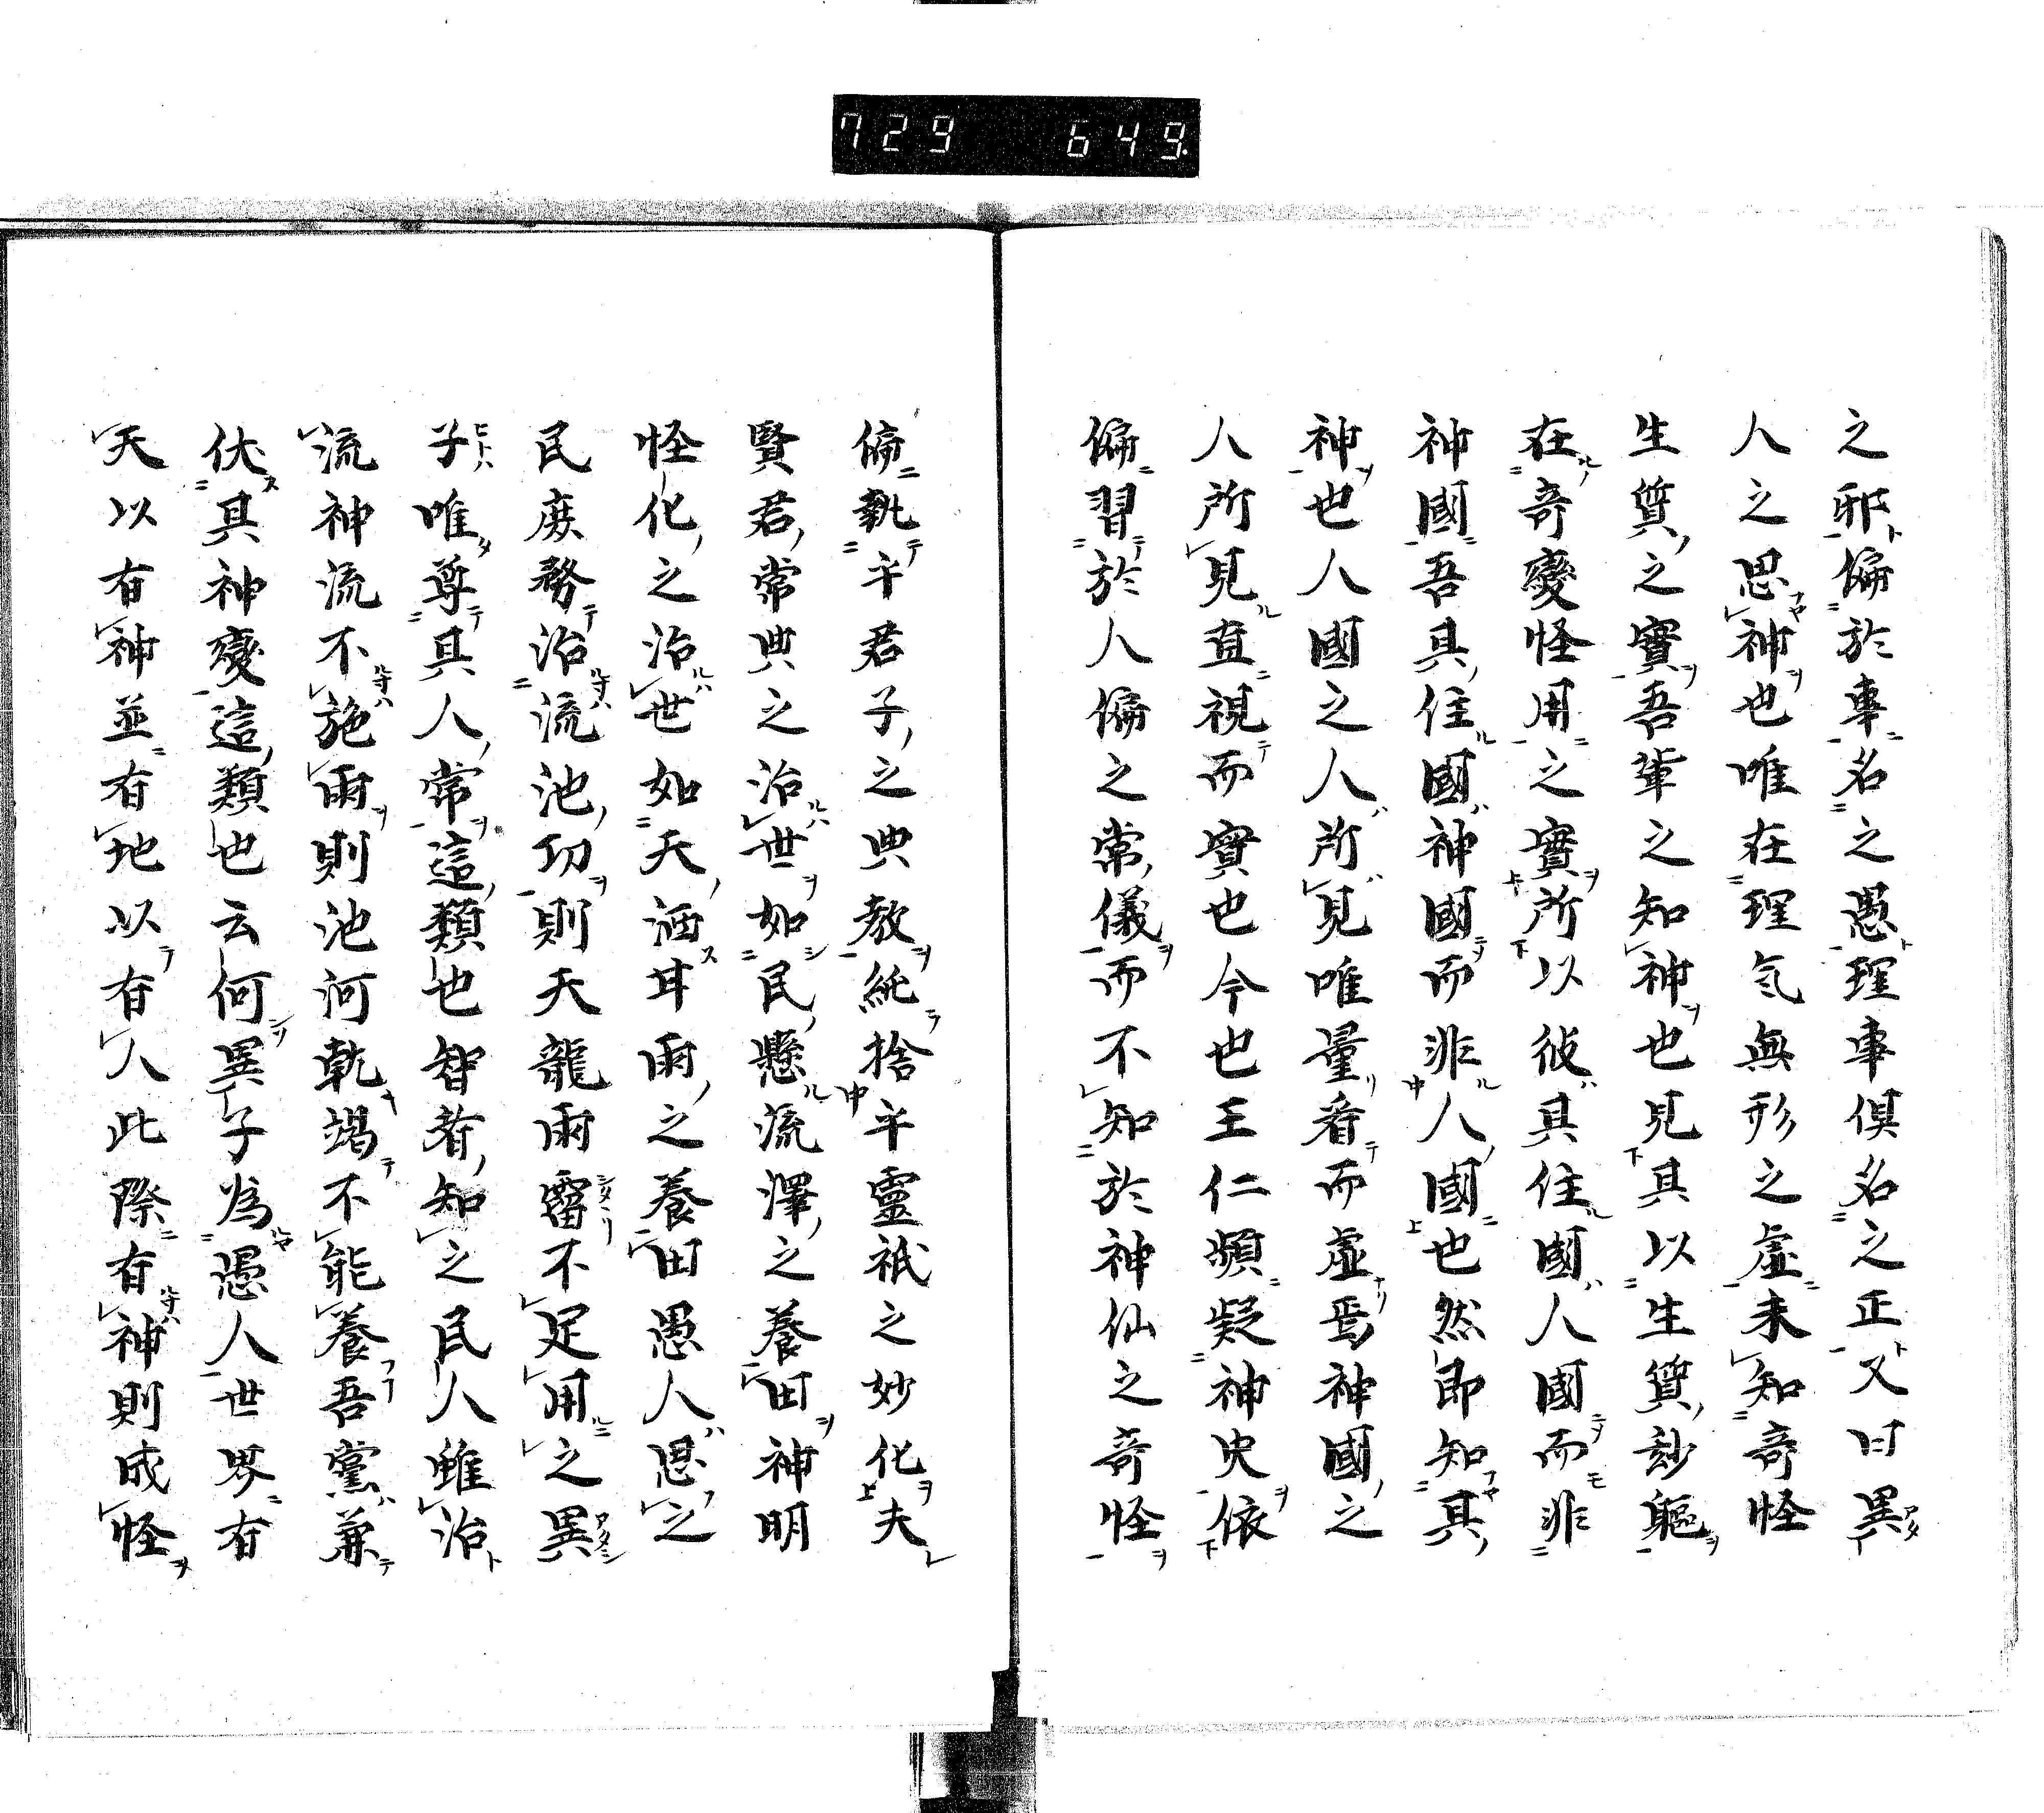 729 649
之邪偏於事名之愚理事俱名之正又曰異
人之思神也唯在理氣無形之虛未知奇怪
生質之實吾輩之知神也見其以生質妙軀
在奇變怪用之實所以彼其住國人國而非
神國吾具住國神國而非人國也然即知其
神也人國之人所見唯量看而虛焉神國之
人所見直視而實也今也王仁頻疑神史依
偏習於人偏之常儀而不知於神仙之奇怪
偏執乎君子之典教純捨乎靈祇之妙化夫
賢君常典之治世如民懸流澤之養田神明
怪化之治世如天洒甘雨之養田愚人思之
民庶務治流池功則天龍雨霤不足用之異
子唯尊其人常這類也智者知之民人雖治
流神流不施雨則池河乾竭不能養吾黨兼
伏其神變這類也云何異子為愚人世界有
天以有神並有地以有人此際有神則成怪